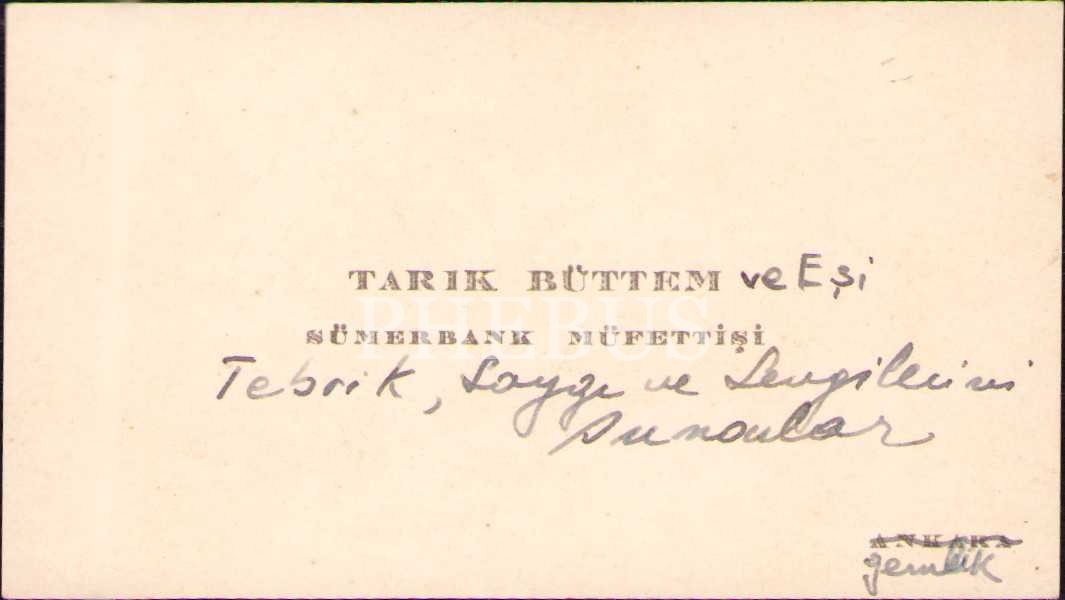 TARIK BÜTTEM ve Eşi
PHEBUS
SÜMERBANK MÜFETTİŞİ
Tebrik, Saygı ve Sevgilerini
sunarlar
ANKARA
gemlik